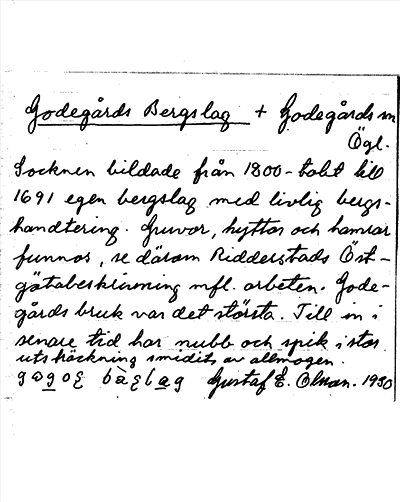 Godegårds Bergslag + Godegårds sn
Ögl.
Socknen bildade från 1200-talet till
1691 egen bergslag med livlig bergs-
handtering. Gruvor, hyttor och hamrar
funnos, se därom Ridderstads Öst-
götabeskrivning mfl. arbeten. Gode-
gårds bruk var det största. Till in i
senare tid har nubb och spik i stor
utsträckning smidits av allmogen.
Gustaf E. Olsson. 1930